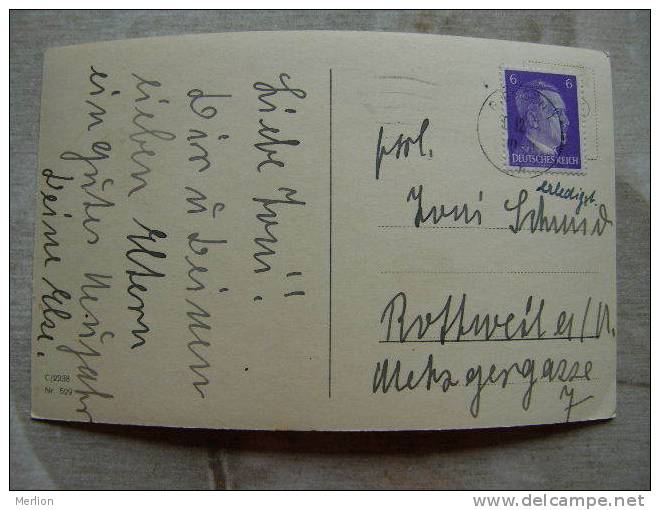 Liebe Toni!
Dir u Deinen
lieben Eltern
ein gutes Neujahr
Deine Else.
C/2238
Nr. 509
6 6
DEUTSCHES REICH
erledigt.
Toni Schmid
Rottweil a/N.
Metzgergasse
7
Merlion
www.delcampe.net